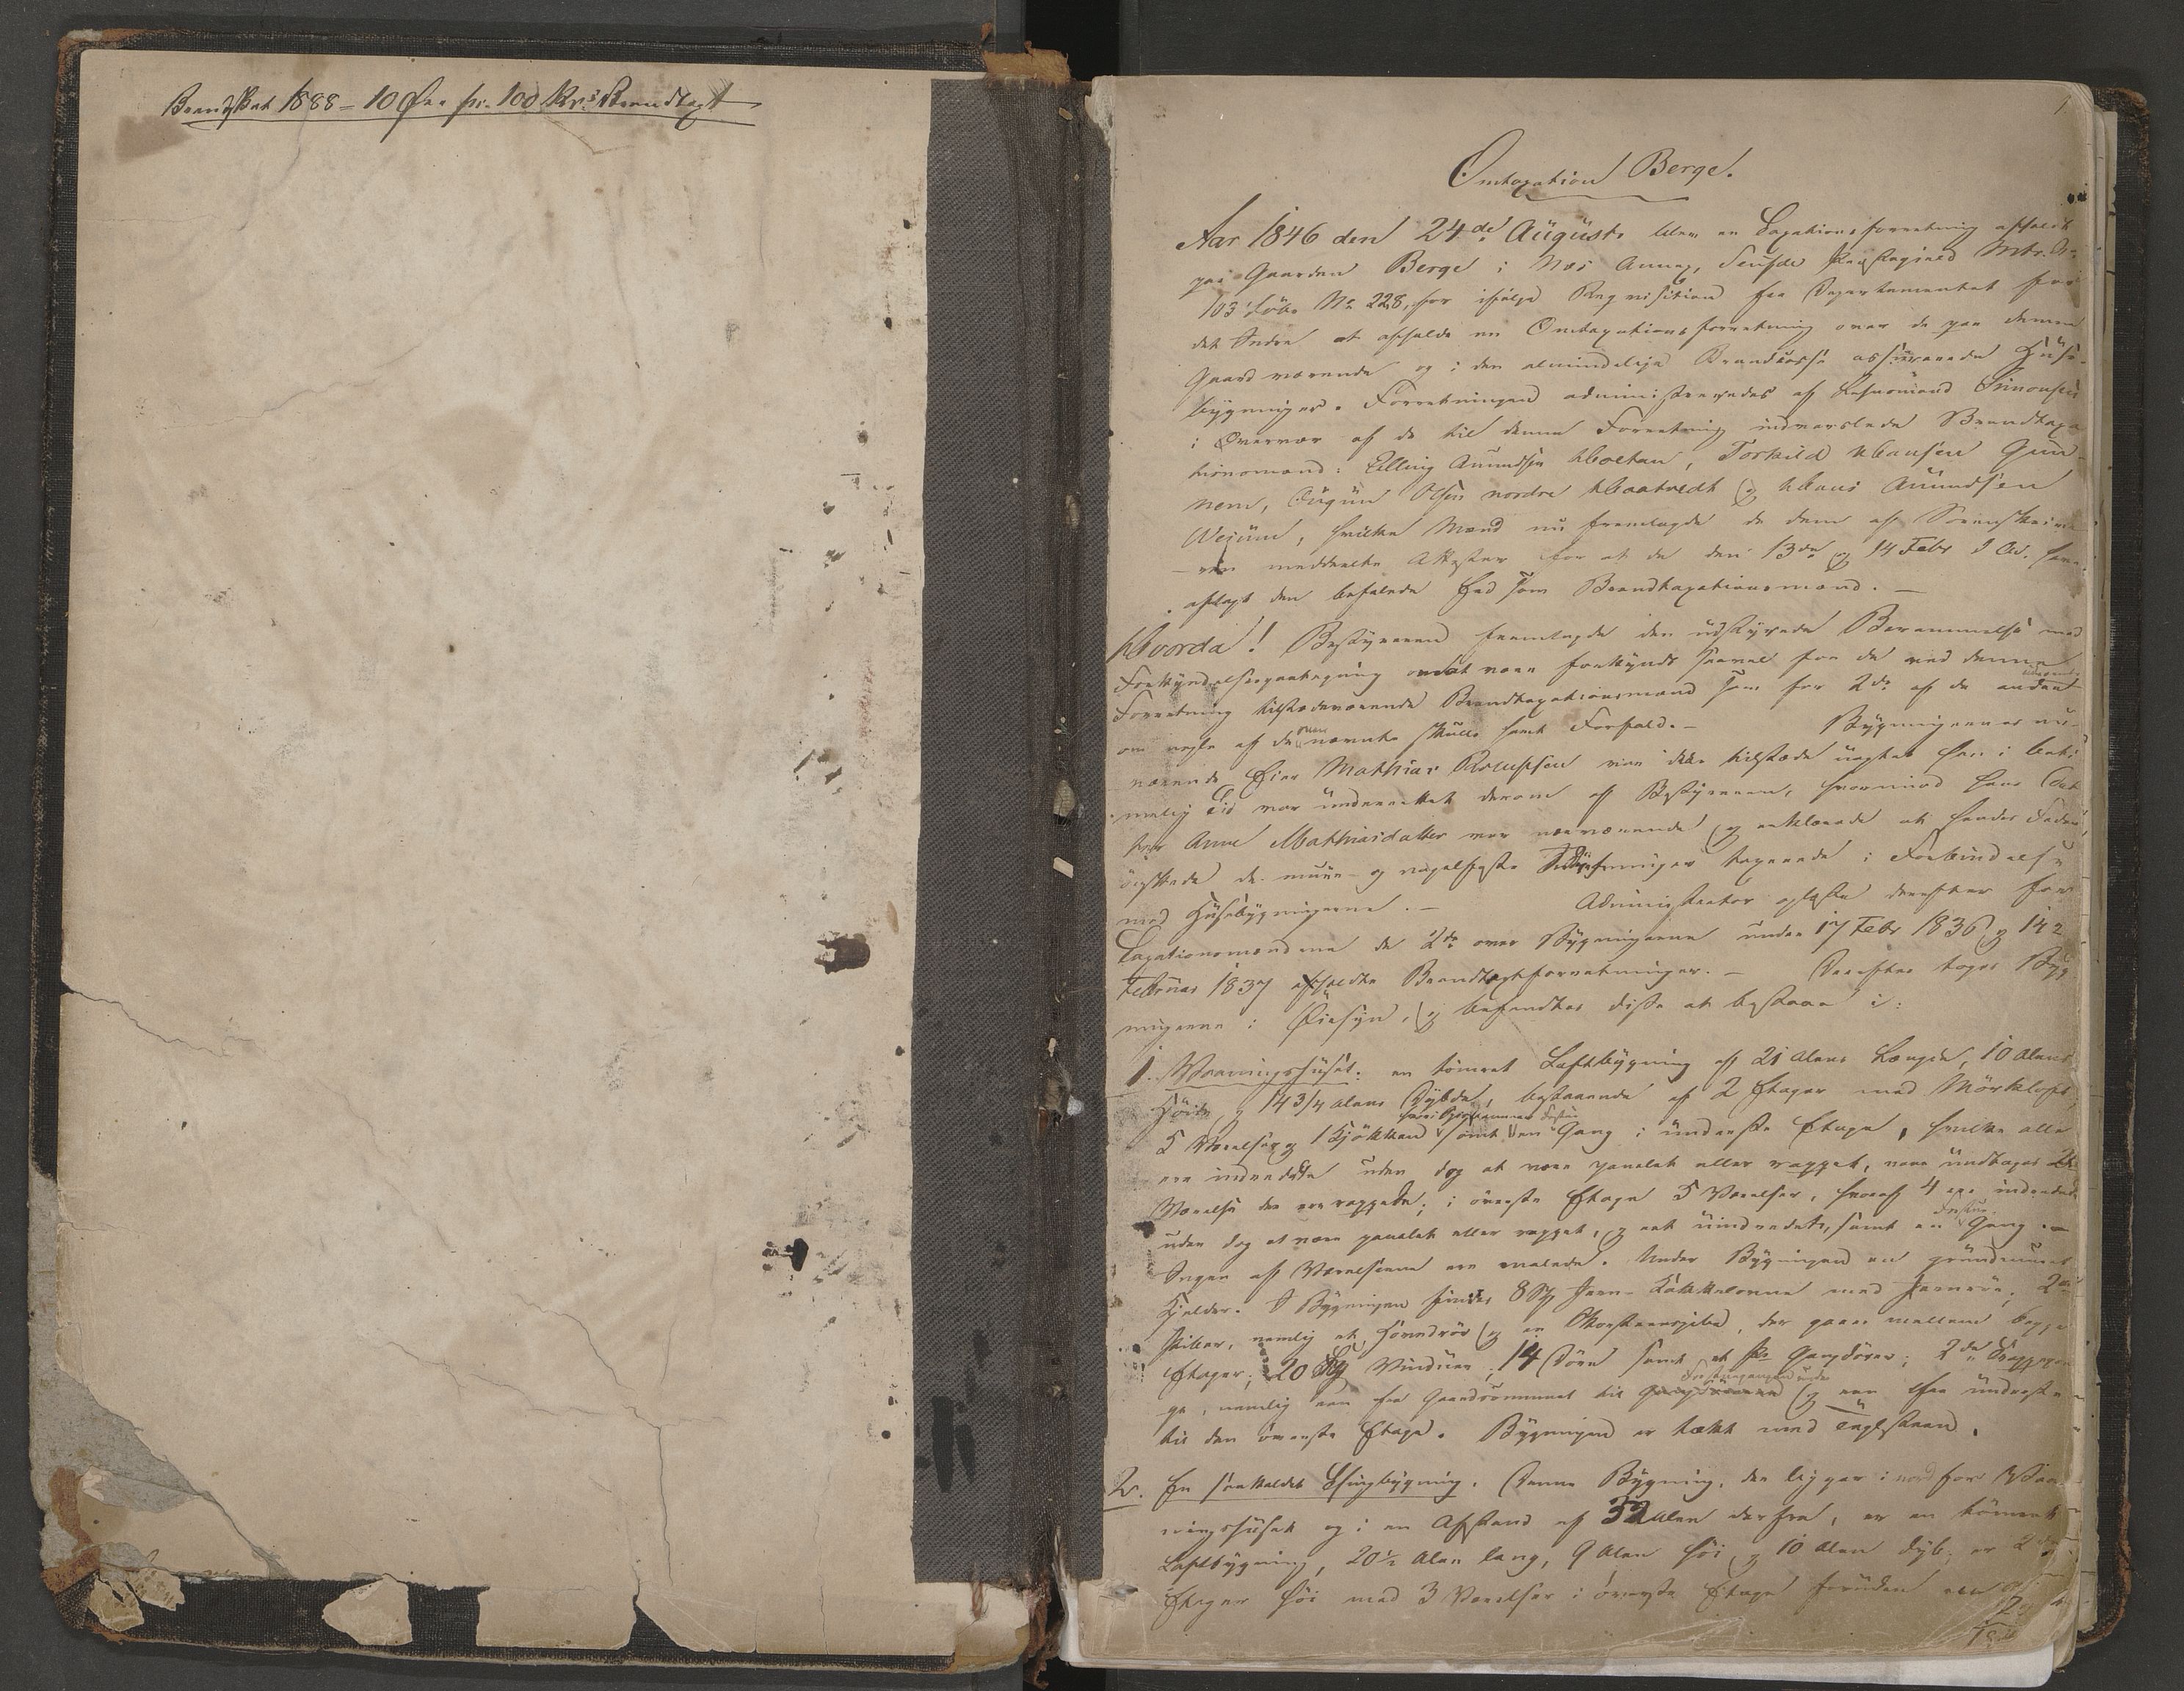 Brandskat 1888 = 10 Øre pr. 100 Kr.s Brandtaxt
1
Omtaxation Berge.
Aar 1846 den 24de August blev en Taxationsforretning afholdt
paa Gaarden Berge i Næs Annex, Matr. No
103 Løbe No 228, for ifølge Requisition fra Departementet for
det Indre at afholde en Omtaxationsforretning over de paa denne
Gaard værende og i den almindelige Brandcasse assurerede Huus-
bygninger. Forretningen administreredes af Lensmand Simonsen
i Overvær af de til denne Forretning indvarslede Brandtaxa-
tionsmænd: Elling Amundsen Holtan, Torkild Hansen Gun-
nem, Olsen nordre Haatvedt og Hans Amundsen
Vejum, hvilke Mænd nu fremlagde de dem af Sorenskrive-
ren meddeelte Attester for at de den 13de og 14 Febr d. A. have
aflagt den befalede Eed som Brandtaxationsmænd. —
Hvorda! Bestyreren fremlagde den udstyrede Berammelse med
Forkyndelsespaategning om at være forkyndt saavel for de ved denne
Forretning tilstedeværende Brandtaxationsmænd som for 2de af de andre
om nogle af de oven nævnte skulle havt Forfald. — Bygningernes nu-
værende Eier Mathias Rolufsen var ikke tilstede uagtet han i beti-
melig Tid var underrettet derom af Bestyreren, hvorimod hans Dat-
ter Anne Mathiasdatter var nærværende og erklærede at hendes Fader
ønskede de muur- og nagelfaste Indretninger taxerede i Forbindelse
med Huusbygningerne. — Administrator oplæste derefter for
Taxationsmændene de 2de over Bygningerne under 17 Febr 1836 og 142
Februar 1837 afholdte Brandtaxtforretninger. — Derefter toges Byg-
ningerne i Øiesyn, og befandtes disse at bestaae i:
1. Vaaningshuset: en tømret Laftbygning af 21 Alens Længde, 10 Alens
Høide og 14 3/4 Alens Dybde, bestaaende af 2 Etager med Mørkloft,
5 Værelser og 1 Kjøkken samt en Gang i underste Etage, hvilke alle
ere indredede uden dog at være panelet eller rappet, naar undtages 2de
Værelse der ere rappede; i øverste Etage 5 Værelser, hvoraf 4 ere indredede
uden dog at være panelet eller rappet, og eet uindredet, samt en Gang. —
Ingen af Værelserne ere malede. Under Bygningen en grundmuret
Kjelder. I Bygningen findes 8 Stk Jern-Kakkelovne med Jernrør, 2de
Piber, nemlig et Komrør og en Skorsteenspibe, der gaaer mellem begge
Etager; 20 Stk Vinduer, 14 Døre samt et Par Gangdøre; 2de Trappegan-
ge, nemlig een fra Gaardsrummet til og een fra underste
til den øverste Etage. Bygningen er tækt med Taglsteen.
2. En saakaldet Bygning. Denne Bygning, der ligger i nord for Vaa-
ningshuset og i en Afstand af 32 Alen derfra, er en tømret
Laftbygning, 20 1/2 Alen lang, 9 Alen høi og 10 Alen dyb; er 2de
Etager høi med 3 Værelser i øverste Etage foruden en